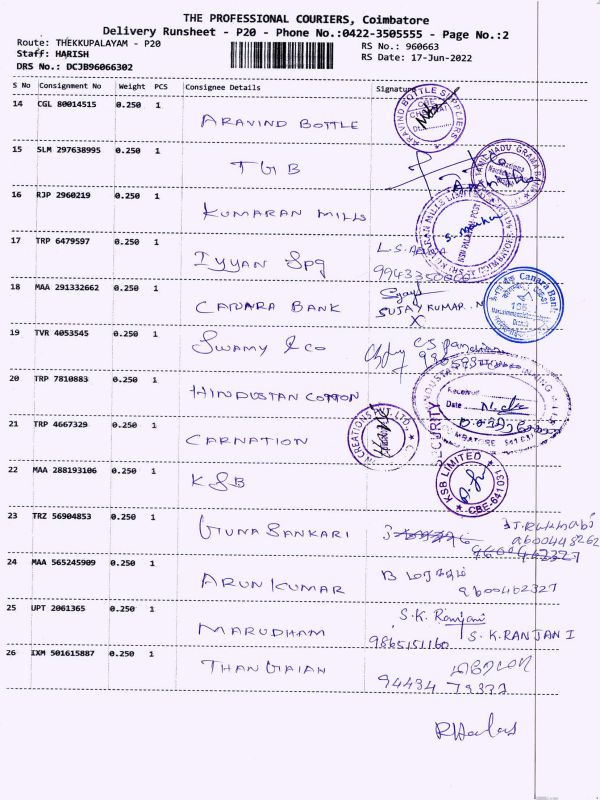 THE PROFESSIONAL COURIERS, Coimbatore
Delivery Runsheet - P20 - Phone No.:0422-3505555 - Page No.:2
Route: THEKKUPALAYAM - P20
Staff: HARISH
DRS No.: DCJB96066302
RS No.: 960663
RS Date: 17-Jun-2022
S No Consignment No Weight PCS Consignee Details Signature
14 CGL 80014515 0.250 1 ARAVIND BOTTLE
ARAVIND BOTTLE SUPPLIERS
15 SLM 297638995 0.250 1 TGB
TAMIL NADU GRAMA BANK
16 RJP 2960219 0.250 1 KUMARAN MILLS
17 TRP 6479597 0.250 1 IYYAN Spg L.S.
18 MAA 291332662 0.250 1 CANARA BANK SUJAY KUMAR. M
X
Canara Bank
19 TVR 4053545 0.250 1 SWAMY & CO
20 TRP 7810883 0.250 1 HINDUSTAN COTTON
SECURITY
Received
Date
21 TRP 4667329 0.250 1 CARNATION
CREATIONS PVT. LTD.,
22 MAA 288193106 0.250 1 KSB
KSB LIMITED
CBE-641031
23 TRZ 56904853 0.250 1 GUNA SANKARI
24 MAA 565245909 0.250 1 ARUN KUMAR B
9600462327
25 UPT 2061365 0.250 1 MARUDHAM S.K. Ranjani
9865151160 S.K.RANJANI
26 IXM 501615887 0.250 1 THANGAIAN
94434 79377